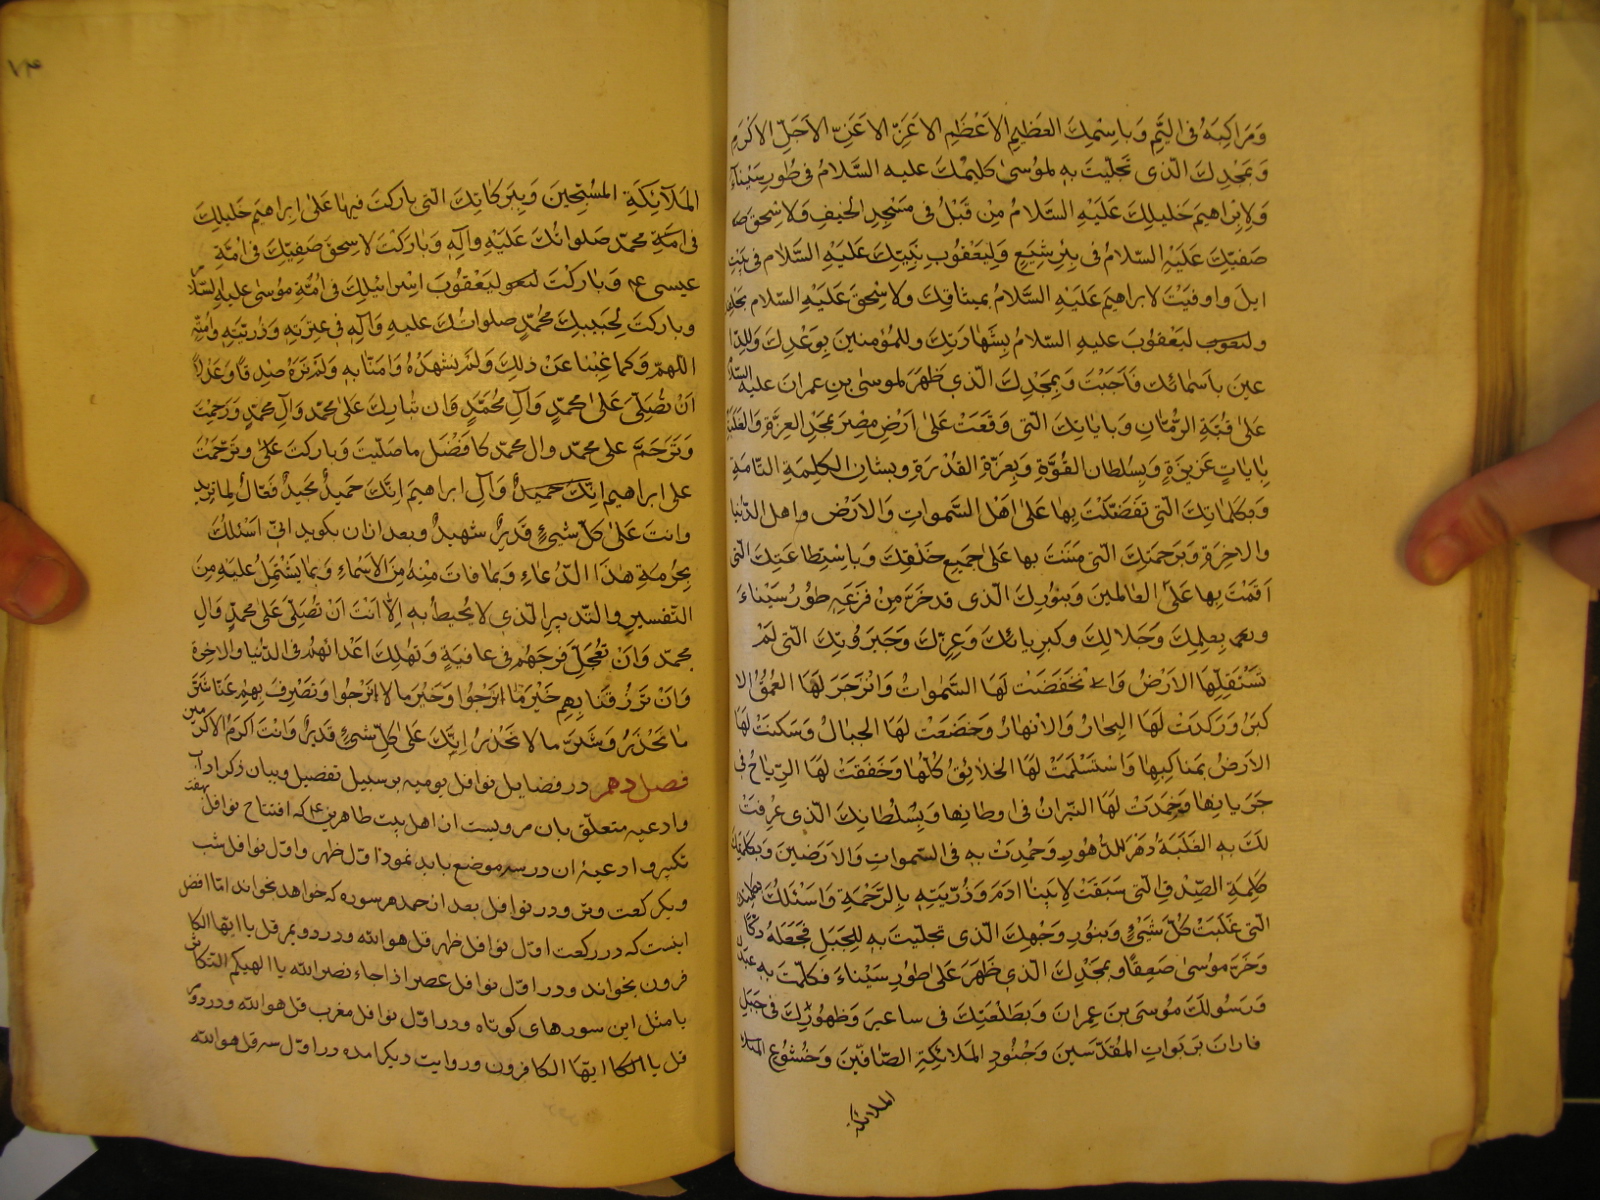 وَمَرَاكِبَهُ فى اليَمِّ وَبِاسْمِكَ العَظيمِ الاَعْظَمِ الاَعَزِّ الاَعَزِّ الاَجَلِّ الاَكْرَمِ
وَبِمَجْدِكَ الّذى تَجَلَّيْتَ بِهِ لموُسىٰ كَليمِكَ عليه السَّلامُ فى طُورِ سَيْنآءَ
وَلاِبْراهيمَ خَليلِكَ عَلَيْهِ السَّلامُ مِنْ قَبْلُ فى مَسْجِدِ الخَيْفِ وَلاِسْحقَ
صَفيِّكَ عَلَيْهِ السّلامُ فى بِئْرِ شِيَعٍ وَلِيَعْقُوبَ نَبيّكَ عَلَيْهِ السَّلام فى بَيْتِ
ايلَ واوفَيْتَ لابراهيمَ عَلَيْهِ السَّلامُ بميثاقِكَ ولاِسْحقَ عَلَيْهِ السّلام بحَلِفِكَ
وليَعْقُوبَ عليهِ السّلامُ بِشَهادَتِكَ وللمُؤمنينَ بِوَعْدِكَ وَلِلدّا
عينَ بِاَسْمائك فَاَجَبْتَ وَبِمَجْدِكَ الّذى ظَهَرَ لموسىٰ بنِ عِمرانَ عليه السّلامُ
عَلىٰ قُبّةِ الرّمّانِ وَبايَاتِكَ الّتى وَقَعَتْ عَلىٰ اَرْضِ مِصْرَ بمَجْدِ العِزَّةِ وَالغَلَبَةِ
بِايَاتٍ عَزيزَةٍ وَبِسُلطان القُوَّةِ وَبِعِزَّةِ القُدْرَةِ وبشانِ الكَلِمَةِ التّامّةِ
وَبِكَلِمَاتِكَ الّتى تفَضَّلْتَ بِها عَلىٰ اَهْل السَّمواتِ وَالاَرْضِ واهل الدّنيا
والاخِرَةِ وَبِرَحمَتِكَ الّتى مَنَنْتَ بها عَلىٰ جَميعِ خَلْقِكَ وَبِاسْتِطاعَتِكَ الّتى
اَقَمْتَ بِها عَلىَ العالمينَ وَبِنُورِكَ الّذى قد خَرَّ مِنْ فَزَعِهِ طُورُ سَيْناءَ
وبِعِلمِكَ وَجَلالِكَ وكبرِيائكَ وَعِزّتكَ وَجَبَرُوتِكَ الّتى لَمْ
تَسْتَقِلَّهَا الاَرْضُ وَانْخَفَضَت لَهَا السَّمٰواتُ وَانْزَجَرَ لَهَا العُمْقُ الا
كبَرُ وَرَكَدَتْ لَهَا البِحَارُ وَالاَنْهارُ وَخَضَعَتْ لهَا الجبَالُ وَسَكَنَتْ لهَا
الاَرْضُ بِمَناكِبِها وَاسْتَسْلَمَتْ لهَا الخلائِقُ كُلُّها وَخَفَقَتْ لهَا الرِّياحُ فى
جَرَيانِها وَخَمَدَتْ لَهَا النّيرانُ فى اوطانِها وَبِسُلْطانِكَ الّذى عُرِفَتْ
لَكَ بِهِ الغَلَبَةُ دَهْرَ الدُّهُورِ وَحُمِدْتَ بِهِ فى السّمواتِ وَالاَرَضينَ وَبِكَلِمَتِكَ
كَلِمَةِ الصِّدْقِ الّتى سَبَقَتْ لاَبينَا ادَمَ وَذُرّيَتِهِ بِالرَّحْمَةِ وَاَسْئَلُكَ بِكَلِمَتِكَ
الّتى غَلَبَتْ كُلَّ شَيْءٍ وَبِنُورِ وَجْهِكَ الّذى تجلّيْتَ بِهِ لِلجَبَلِ فَجَعَلَهُ دَكًّا
وَخَرَّ موُسىٰ صَعِقًا وَبِمَجْدِكَ الّذى ظَهَرَ عَلىٰ طوُرِ سَيْناءَ فَكلّمْتَ بِهِ عَبْدَكَ
وَرَسُولَكَ مُوسَى بْنَ عِمرانَ وَبِطَلْعَتِكَ فى ساعيرَ وَظهُورِكَ فى جَبَلِ
فارانَ بِرَبَواتِ المُقَدَّسينَ وَجُنُودِ المَلائِكَةِ الصّافّينَ وَخُشُوعِ
الملائكة
٧٤
المَلآئِكَةِ المُسَبِّحينَ وَبِبَرَكَاتِكَ الّتى باركتَ فيها عَلىٰ ابراهيمَ خَليلِكَ
فى امّةِ محمّد صَلواتُكَ عَلَيْهِ وآلِهِ وَبَارَكْتَ لاِسحقَ صَفيِّكَ فى امّةِ
عيسى ع وَبٰاركْتَ ليَعْقوُبَ اسْراءيلِكَ فى اُمّةِ موُسىٰ عليهِ السّلام
وباركتَ لحَبيبِكَ محُمّدٍ صلواتُكَ عليهِ وَآلِهِ فى عِتْرَتِهِ وذُرّيّتِهِ وَاُمّتِهِ
اللهمّ وَكما غِبْنا عَنْ ذلِكَ وَلَمْ نَشْهَدْهُ وَامَنّا بِهِ وَلَمْ نَرَهُ صِدْقًا وعَدْلاً
اَنْ تُصَلِّىَ عَلىٰ محمّدٍ وَآلِ محُمَّدٍ وَان تُبارِكَ عَلىٰ محمّد وَآلِ محمّدٍ
وَتَرَحَّمَ على محمّدٍ وال محمّد كافْضَل ما صلّيْتَ وَباركتَ وترَحّمْتَ
على ابراهيم وَآلِ ابراهيمَ اِنَّكَ حَميدٌ مجيدٌ فعّالٌ لما تريد
وانتَ عَلىٰ كلّ شَيْءٍ قَديرٌ شهيدٌ وبعد ازان بكويد انّى اَسْئلُكَ
بِحُرْمَةِ هٰذَا الدّعاءِ وَبِما فاتَ مِنْهُ مِنَ الاَسْماءِ وَبِما يَشْتَمِلُ عَليهِ مِنَ
التّفسيرِ والتّدبيرِ الّذى لا يُحيطُ بِهِ اِلّا اَنْتَ اَنْ تُصَلّىَ عَلىٰ محمّدٍ وَالِ
محمّد وَاَنْ تُعَجّلَ فرجَهُمْ فى عافيَةٍ وَتُهْلِكَ اَعْدائَهُمْ فى الدّنيا والاخرة
وَاَنْ تَرْزُقَنا بِهِم خَيْرَ مٰا نَرْجُوا وَخَيْرَ ما لا نَرْجُوا وَتَصْرِفَ بِهِمْ عَنّا شَرَّ
مٰا نَحْذَرُ وَشَرَّ ما لا نَحْذَرُ اِنَّكَ عَلىٰ كُلّ شَيْءٍ قَديرٌ وَانتَ اَكرَمُ الاكرَمين
فصل دهم در فضايل نوافل يوميه بر سبيل تفصيل وبيان ذكر اداب
وادعيه متعلّق بان مرويست از اهل بيت طاهرين ع كه افتتاح نوافل بهفت
تكبير و ادعيهٔ ان در سه موضع بايد نمود اوّل ظهر واوّل نوافل شب
ويكركعت وتر ودر نوافل بعد از حمد هر سوره كه خواهد بخواند امّا افضل
اينست كه در ركعت اوّل نوافل ظهر قل هو الله ودر دويم قل يا ايّها الكا
فرون بخواند ودر اوّل نوافل عصر اذا جاء نصر الله يا الهيكم التكاثر
يا مثل اين سورهاى كوتاه ودر اوّل نوافل مغرب قل هو الله ودر دوم
قل يا ايّها الكافرون وروايت ديكر امده در اوّل سه قل هو الله